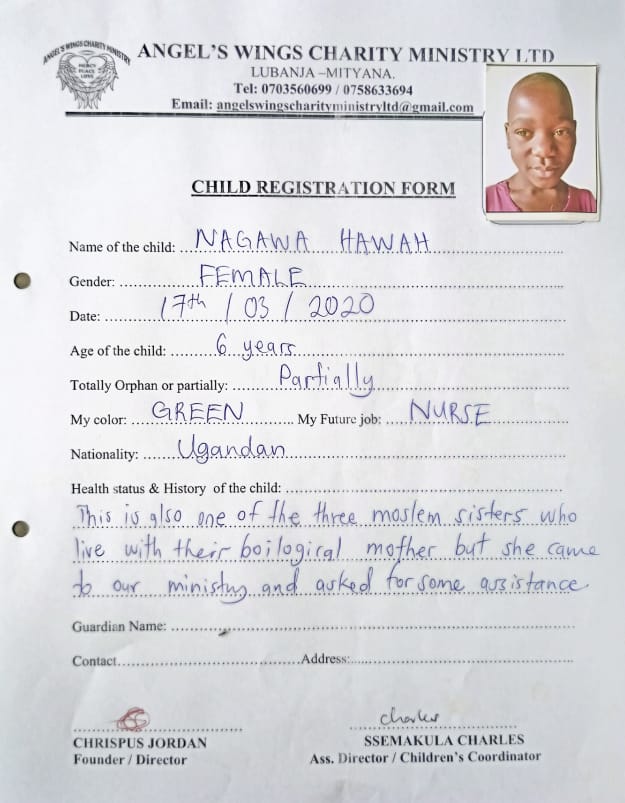 ANGEL'S WINGS CHARITY MINISTRY
MERCY
PEACE
LOVE
ANGEL'S WINGS CHARITY MINISTRY LTD
LUBANJA –MITYANA.
Tel: 0703560699 / 0758633694
Email: angelswingscharityministryltd@gmail.com
CHILD REGISTRATION FORM
Name of the child: NAGAWA HAWAH
Gender: FEMALE
Date: 17th / 03 / 2020
Age of the child: 6 years
Totally Orphan or partially: Partially
My color: GREEN My Future job: NURSE
Nationality: Ugandan
Health status & History of the child:
This is also one of the three moslem sisters who
live with their boilogical mother but she came
to our ministry and asked for some assistance
Guardian Name:
Contact Address:
charles
CHRISPUS JORDAN SSEMAKULA CHARLES
Founder / Director Ass. Director / Children's Coordinator